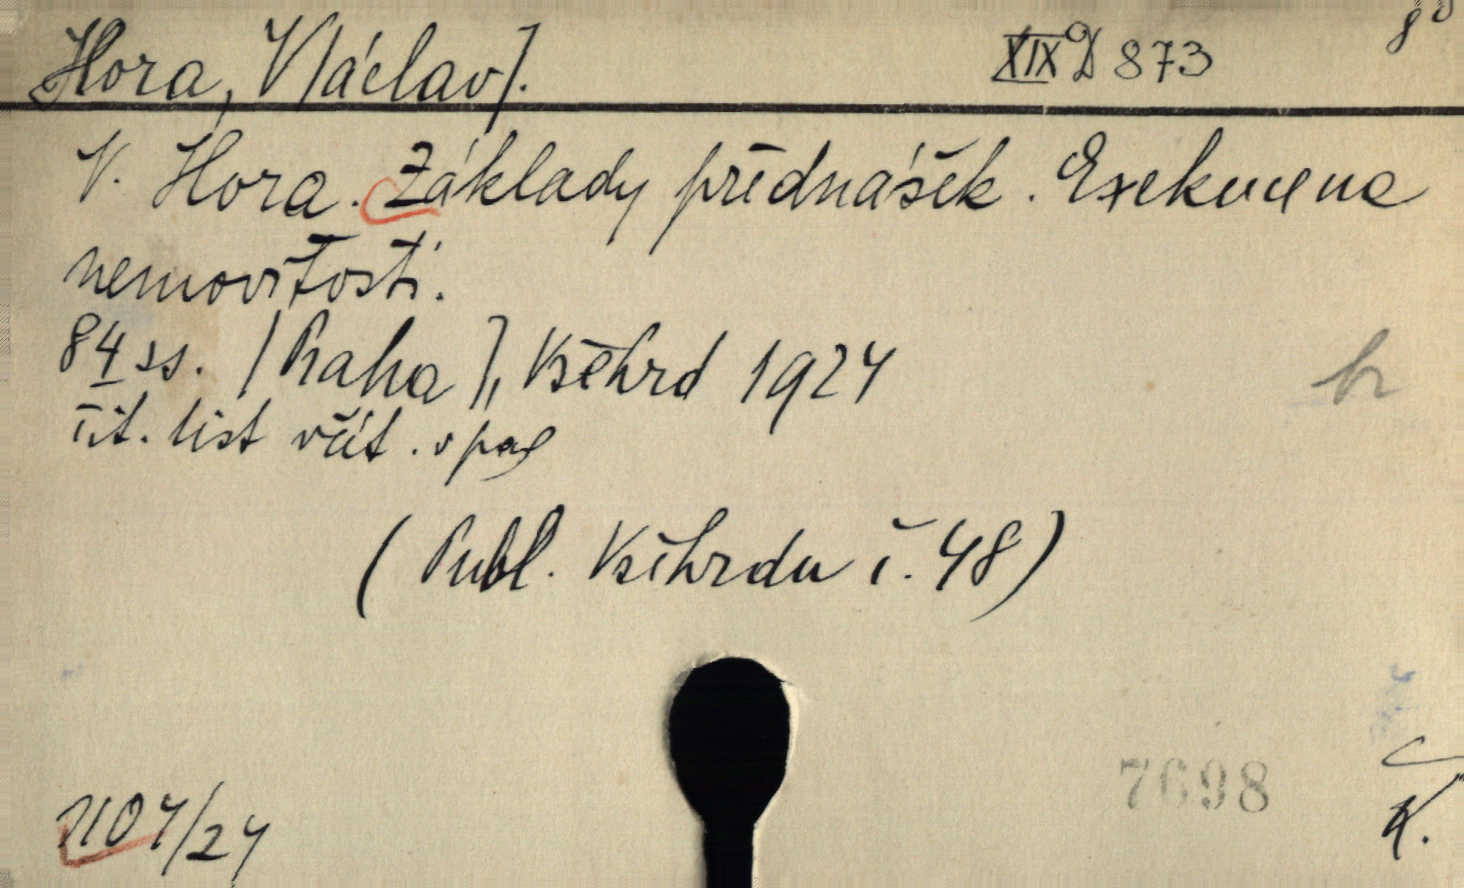 Hora, V[áclav].
XIX D 873
8°
V. Hora. Základy přednášek. Exekuce na
nemovitosti.
84 ss. [Praha], Všehrd 1924
br
tit. list včít. v pag
(Publ. Všehrdu č. 48)
7698
K.
2107/24